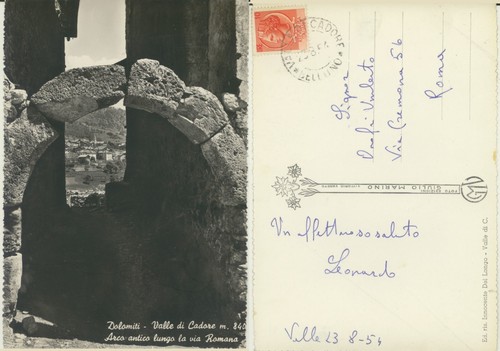 Dolomiti - Valle di Cadore m. 840
Arco antico lungo la via Romana
Signor
Umberto
Via Cremona 56
Roma
FOTO EDIZIONI
GIULIO MARINO
VITTORIO VENETO
Un affettuoso saluto
Leonardo
Valle 23 8-54
Ed. ris. Innocente Del Longo - Valle di C.